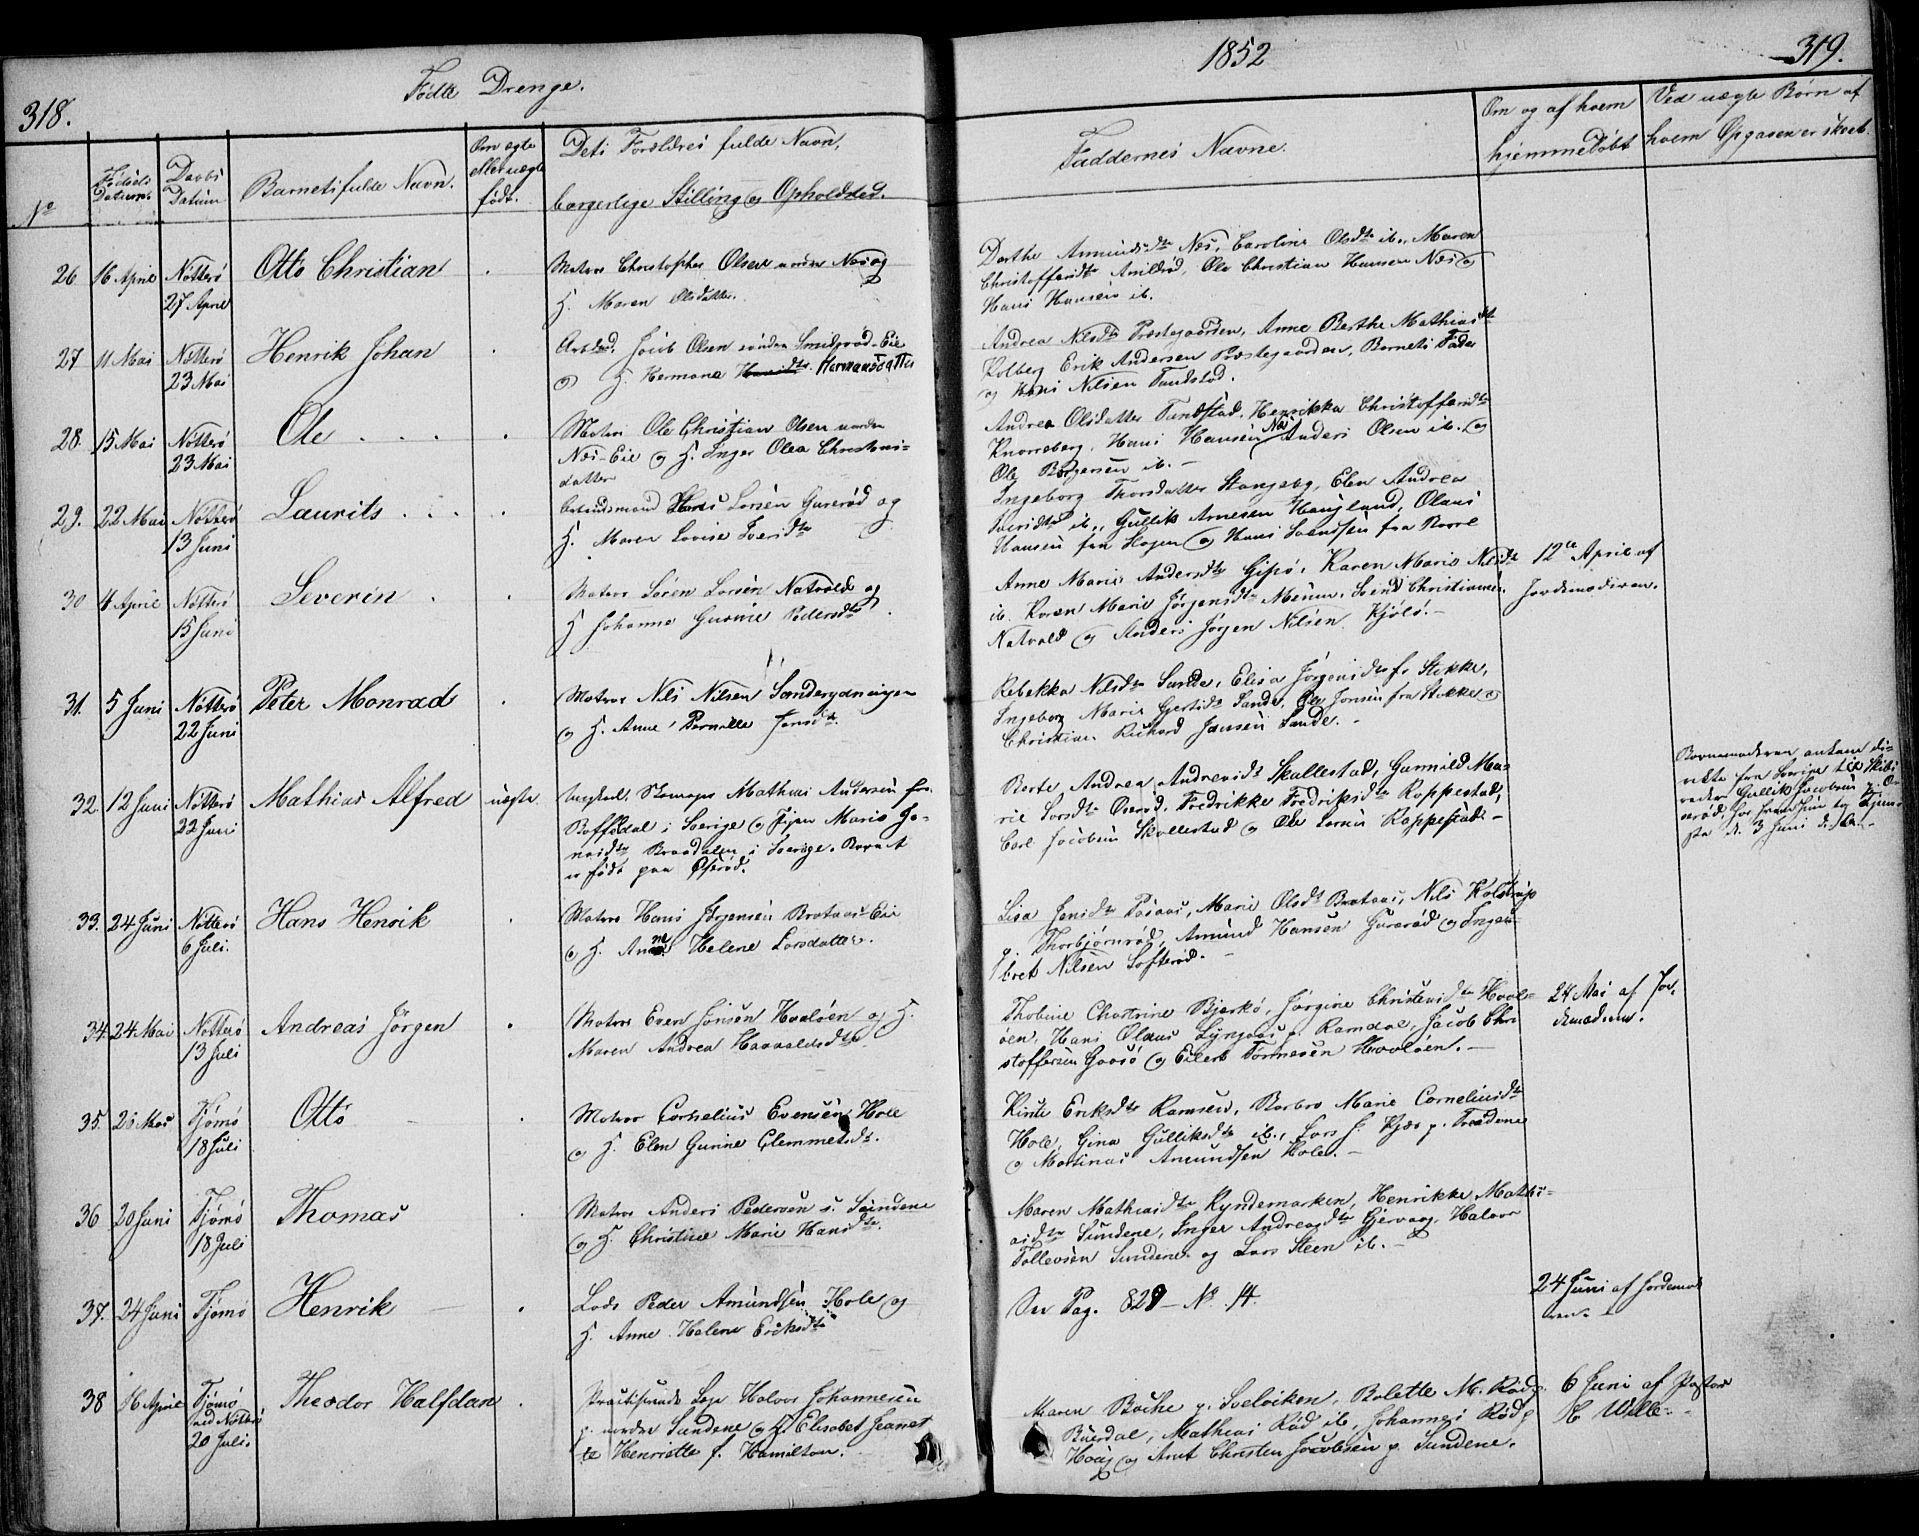 318.
Fødte Drenge.
1852
319.
No
Fødsels Datum.
Daabs Datum
Barnets fulde Navn.
Om ægte eller uægte født.
Dets Forældres fulde Navn,
borgerlige Stilling og Opholdsted.
Faddernes Navne.
Om og af hvem
hjemmedøbt
Ved uægte Børn af
hvem Opgaven er skeet.
26 16 April Nøtterø
27 April
Otto Christian
Matros Christopher Olsen nordre Næs og
H. Maren Olsdatter.
Dorthe Amundsdtr Næs, Caroline Olsdtr ib., Maren
Christoffersdtr Arildsrød, Ole Christian Hansen Næs og
Hans Hansen ib.
27 11 Mai Nøtterø
23 Mai
Henrik Johan
Arbmd. Jacob Olsen søndre Smidsrød-Eie
og H. Hermana Hermansdatter
Andrea Nilsdtr Præstegaarden, Anne Berthe Mathiasdtr
Kolberg, Erik Andersen Præstegaarden, Barnets Fader
og Hans Nilsen Tandstad.
28. 15 Mai Nøtterø
23 Mai
Ole
Matros Ole Christian Olsen nordre
Næs-Eie og H. Inger Olea Christens-
datter
Andrea Olsdatter Tandstad, Henrikka Christoffersdtr
Knarreberg, Hans Hansen Næs, Anders Olsen ib. og
Ole Børgersen ib. –
29. 22 Mai Nøtterø
13 Juni
Laurits
Arbeidsmand Hans Larsen Gurerød og
H. Maren Lovise Iversdtr
Ingeborg Thorsdatter Stangeby, Elen Andrea
Iversdtr ib., Gullik Arnesen Haugland, Olaus
Hansen fra Skogen og Hans Svendsen fra Borre
30 4 April Nøtterø
15 Juni
Severin
Matros Søren Larsen Natvold og
H. Johanne Gurine Pedersdtr
Anne Marie Andersdtr Gipø, Karen Marie Nilsdtr
ib. Karen Marie Jørgensdtr Meum, Svend Christiansen
Natvold og Anders Jørgen Nilsen Kjølø. –
12te April af
Jordemoderen.
31. 5 Juni Nøtterø
22 Juni
Peter Monrad
Matros Nils Nilsen Sande
og H. Anne Pernille Jonsdtr.
Rebekka Nilsdtr Sande, Elisa Jørgensdtr fr. Stikke,
Ingeborg Marie Gjertsdtr Sande, Ole Jonsen fra Stokke og
Christian Richard Jansen Sande. –
32. 12 Juni Nøtterø
22 Juni
Mathias Alfred
uægte
Ungkarl, Skomager Mathias Andersen fra
i Sverige og Pigen Maria Jo-
nasdtr Braadalen i Sverige. Barnet
er født paa Øterød.
Berte Andrea Andreasdtr Skallestad, Gunnild Ma-
rie Larsdtr Øterød, Fredrikke Fredriksdtr Rappestad,
Carl Jacobsen Skallestad og Ole Larsen Rappestad. –
Barnemoderen ankom di-
rekte fra Sverige til Skibs-
reder Gullik Jacobsen p. Ø-
terød, for hvem hun tog Tjene-
ste d. 3 Juni d. A. –
33. 24 Juni Nøtterø
6 Juli.
Hans Henrik
Matros Hans Jørgensen Brataas-Eie
og H. Anne Helene Larsdatter.
Lisa Jensdtr Røsaas, Marie Olsdtr Brataas, Nils Kolstrup
p. Thorbjørnrød, Amund Hansen Gurerød og Inge-
bret Nilsen Lofterød. –
34. 24 Mai Nøtterø
13 Juli
Andreas Jørgen
Matros Even Jonsen Hvaløen og H.
Maren Andrea Haraldsdtr
Thobine Chatrine Bjerkø, Jørgine Christensdtr Hval-
øen, Hans Olaus Lyngaas p. Ramdal, Jacob Chri-
stoffersen Gaasø og Eilert Tørresen Hvaløen. –
24 Mai af Jor-
demoderen.
35. 26 Mai Tjømø
18 Juli
Otto
Matros Cornelius Evensen Hole
og H. Elen Gurine Clemmetsdtr.
Kirsti Eriksdtr Ramsen, Barbro Marie Corneliusdtr
Hole, Gina Gulliksdtr ib., Lars J. Kjær p. Treidene
og Martinus Amundsen Hole. –
36 20 Juni Tjømø
18 Juli
Thomas
Matros Anders Pedersen s. Sundene
og H. Christine Marie Hansdtr.
Maren Mathiasdtr Kyndemarken, Henrikke Mathi-
asdtr Sundene, Inger Andreasdtr Gjervaag, Halvor
Tollevsen Sundene og Lars Steen ib. –
37. 24 Juni Tjømø
Henrik
Lods Peder Amundsen Hole og
H. Anne Helene Eriksdtr
See Pag. 829 – No 14.
24 Juni af Jordemode-
ren. –
38 16 April Tjømø
ved Nøtterø
20 Juli.
Theodor Halfdan
Practiserende Læge Halvor Johannesen
p. nordre Sundene og H. Elisabet Jeanet-
te Henriette f. Hamilton. –
Maren Bache p. Svelviken, Bolette M. Rød p.
Buerdal, Mathias Rød ib., Johannes Rød p.
Houg og Arnt Christen Jacobsen p. Sundene.
6 Juni af Pastor
H. Wille. –